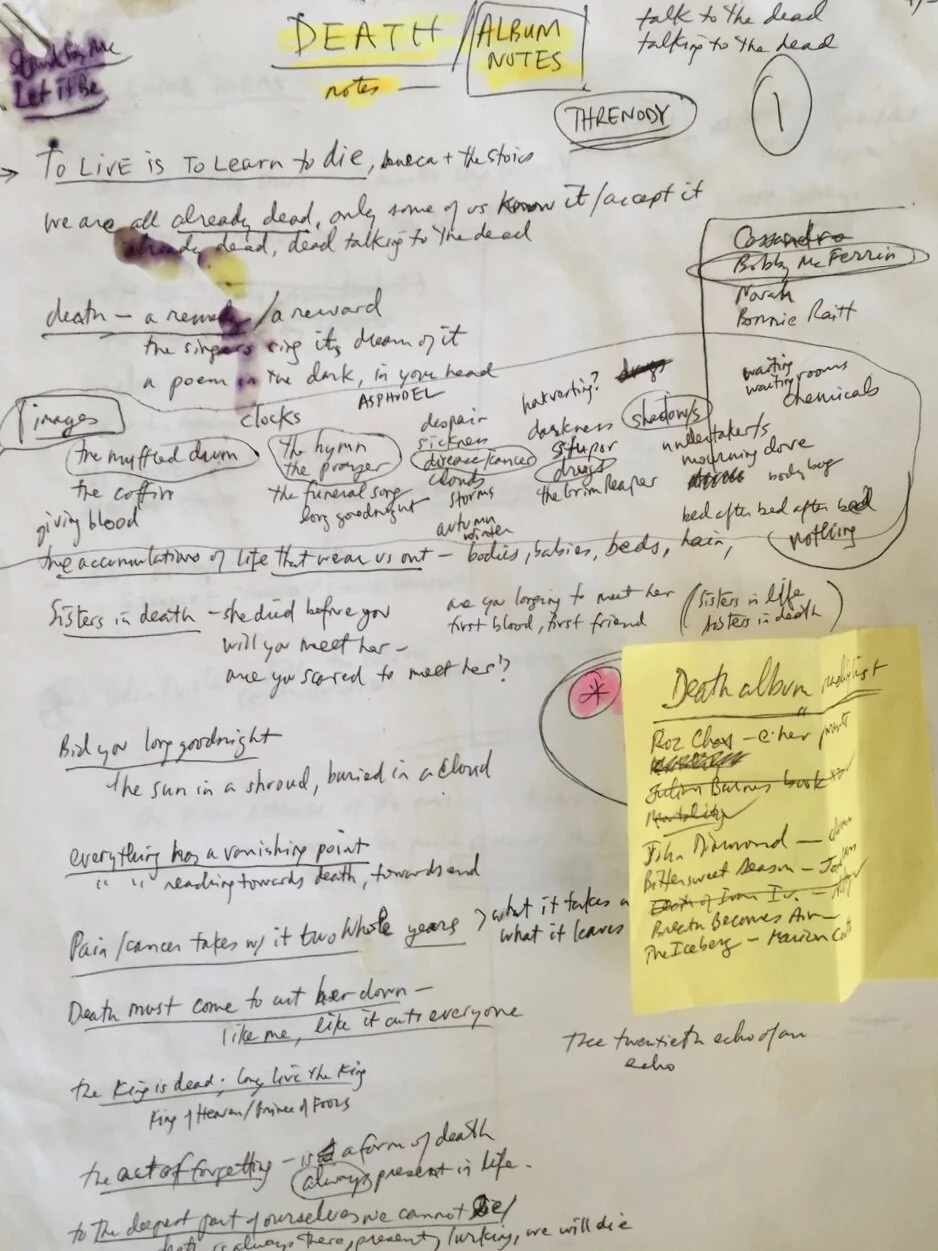 Stand by Me
Let it Be
DEATH / ALBUM NOTES
notes —
talk to the dead
talking to the dead
THRENODY
1
→ To LIVE is To Learn to die, Seneca + the stoics
we are all already dead, only some of us know it/accept it
already dead, dead talking to the dead
Cassandra
Bobby McFerrin
Norah
Bonnie Raitt
death — a remedy / a reward
the singers sing it, dream of it
a poem in the dark, in your head
images
clocks
ASPHODEL
the muffled drum
the coffin
giving blood
the hymn
the prayer
the funeral song
long goodnight
despair
sickness
disease/cancer
clouds
storms
autumn
winter
harvesting?
darkness
stupor
drugs
the Grim Reaper
drugs
shadows
waiting
waiting rooms
chemicals
undertakers
mourning dove
body bag
bed after bed after bed
nothing
the accumulations of life that wear us out — bodies, babies, beds, hair,
Sisters in death — she died before you
will you meet her —
are you scared to meet her?
are you longing to meet her
first blood, first friend
(sisters in life
sisters in death)
Bid you long goodnight
the sun in a shroud, buried in a cloud
everything has a vanishing point
" " reaching towards death, towards end
Pain/cancer takes w/ it two whole years > what it takes
what it leaves
Death must come to cut her down —
like me, like it cuts everyone
the King is dead. Long live the King
King of Heaven/Prince of Fools
the act of forgetting — is a form of death
always present in life.
to the deepest part of ourselves we cannot die/
death is always there, present, lurking, we will die
*
Death album
Roz Chast — @ her parents
Julian Barnes book
Mortality
John Diamond —
Bittersweet Season —
Death of Ivan Iv. —
Breath Becomes Air —
The Iceberg — Marion Coutts
The twentieth echo of an
echo